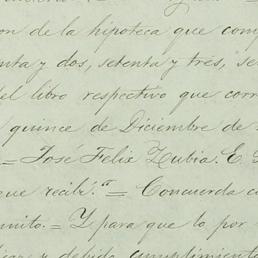 on de la hipoteca que com
nta y dos, setenta y tres, se
del libro respectivo que corr
quince de Diciembre de
= José Felix Zubia. E. P
que recibí." = Concuerda c
mito. = Y para que lo por
y debido cumplimiento